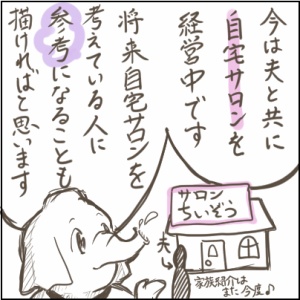 今は夫と共に
自宅サロンを
経営中です
将来自宅サロンを
考えている人に
参考になることも
描ければと思います
サロン
ちいぞぅ
夫
家族紹介は
また今度♪